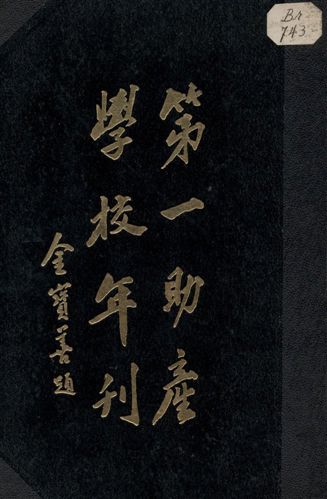 第一助產
學校年刊
金寶善題
Br
743